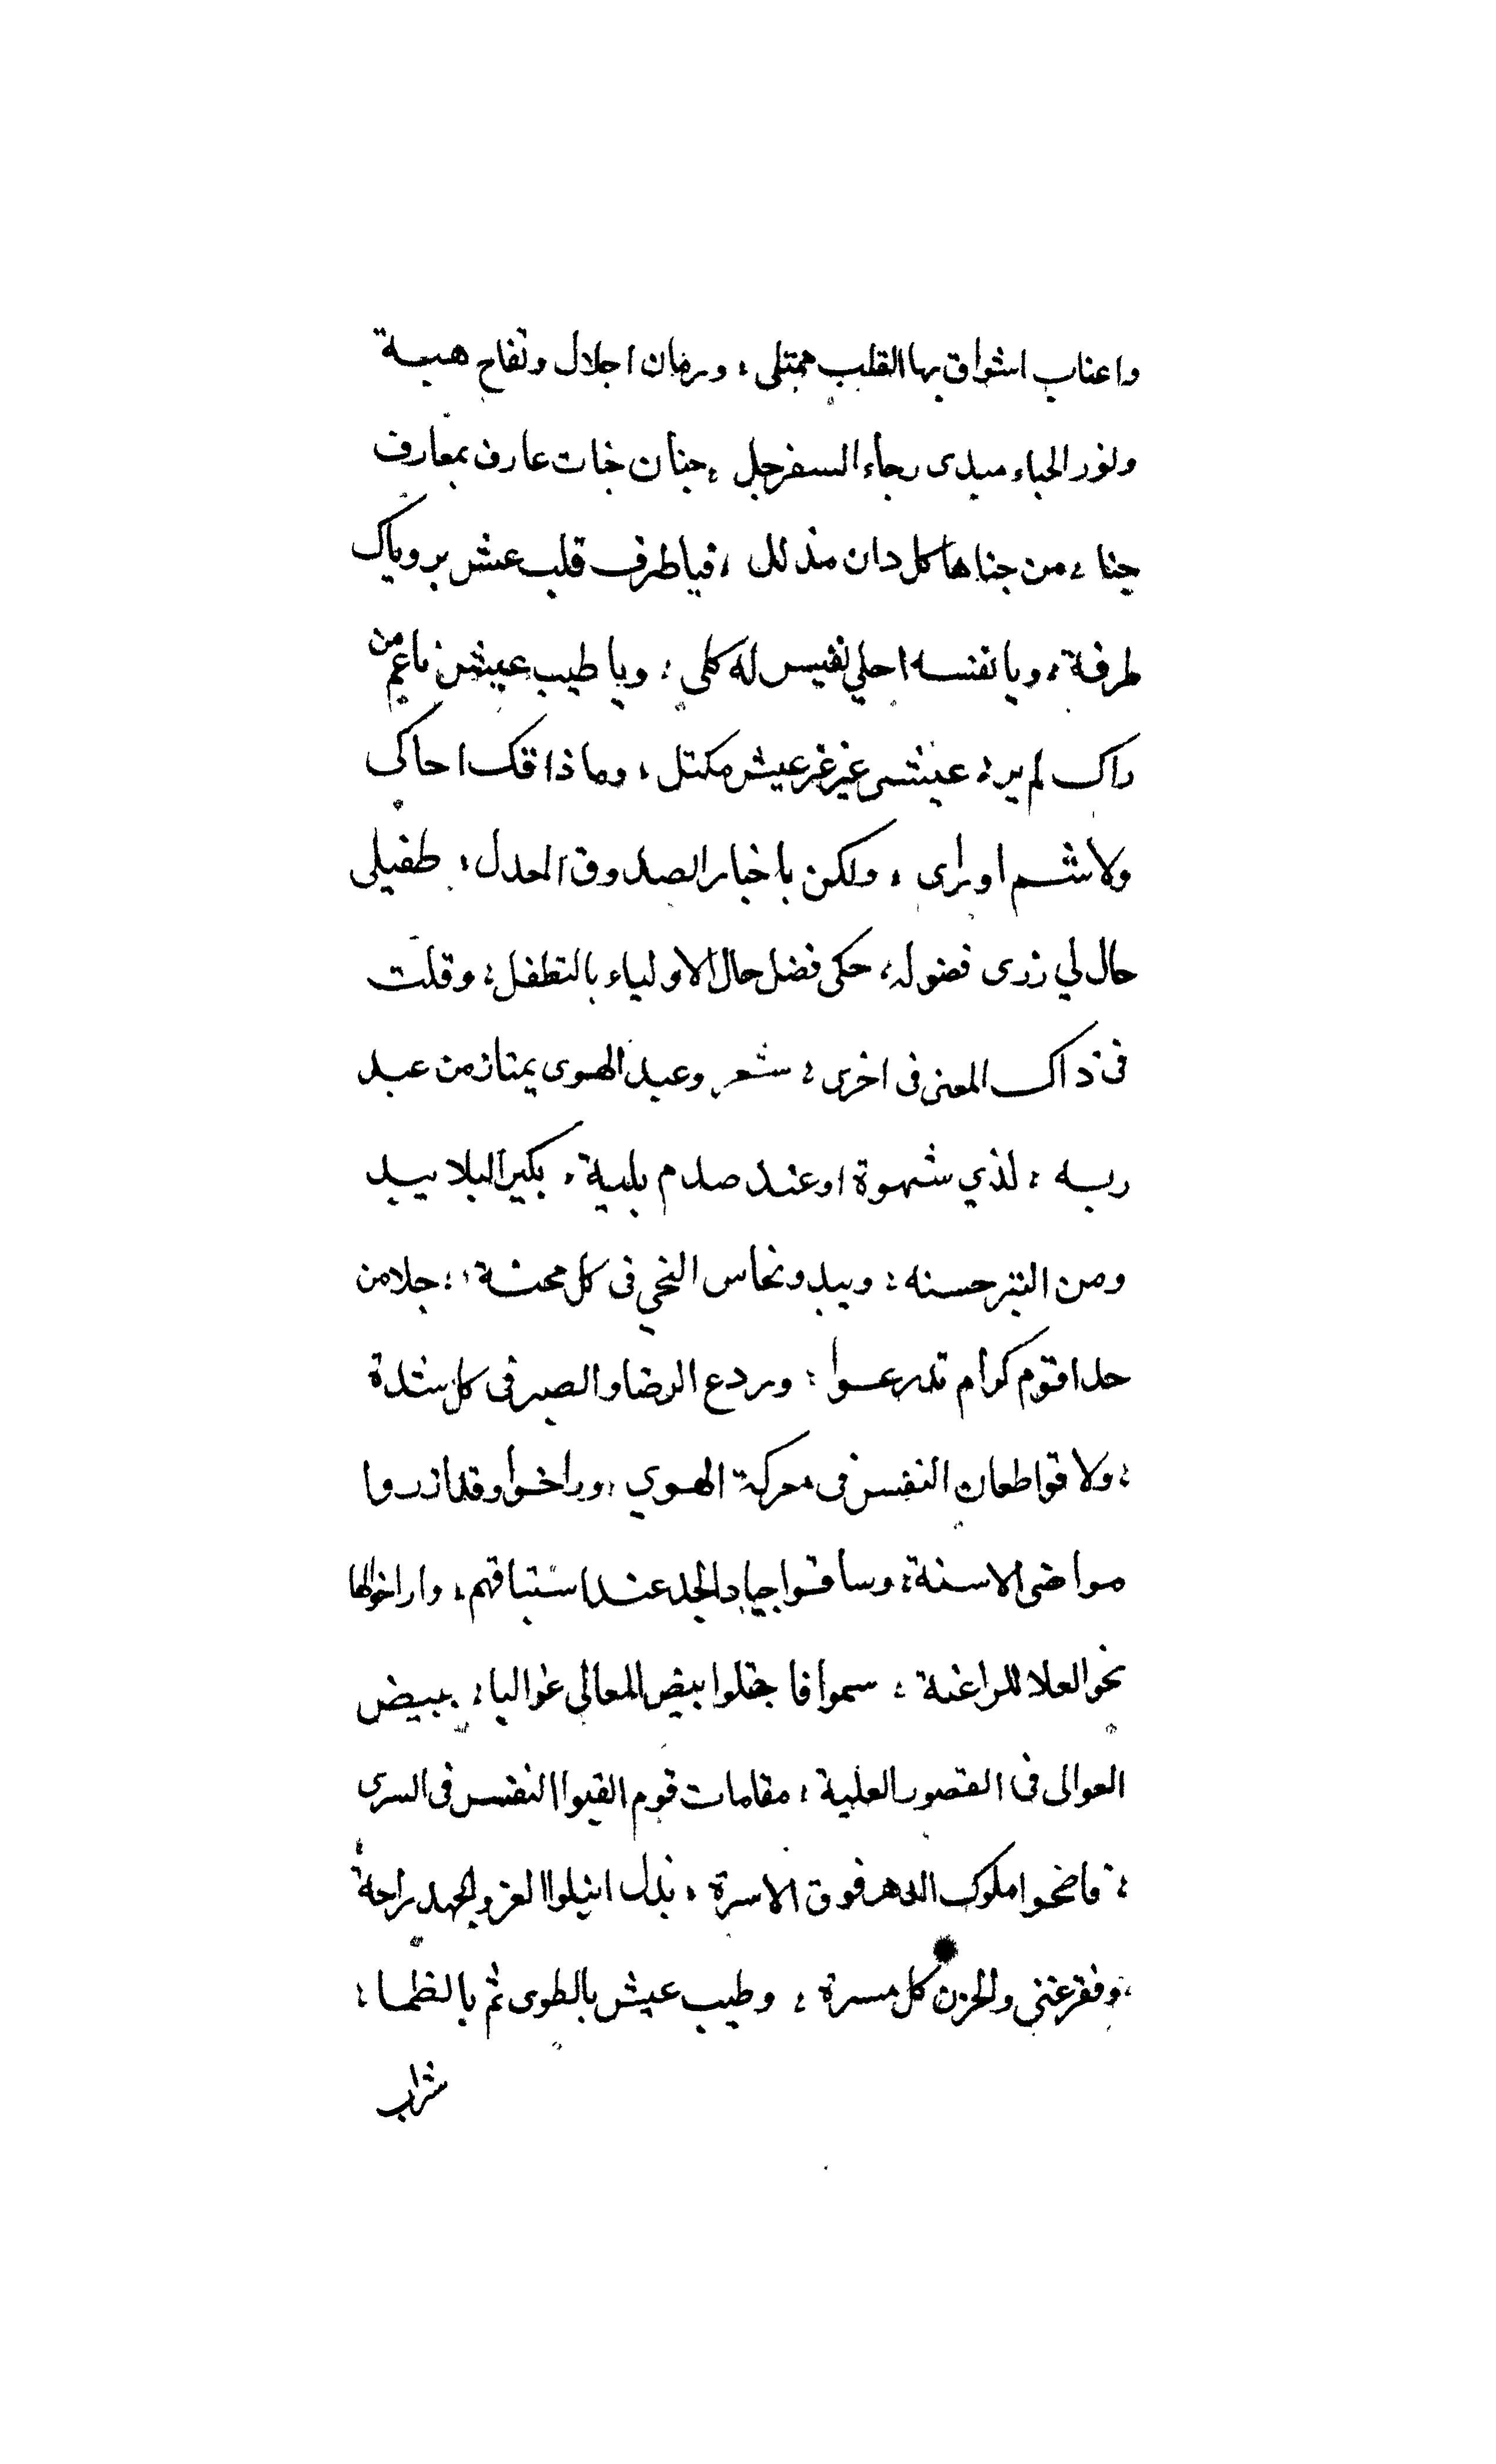 واعناب اشواق بها القلب ممتلى؛ ورمان اجلال وتفاح هيبة
ونور الحياء مبدى رجاء السفرجل ؛ جنان خبات عارف بمعارف
جنا ؛ من جناها كل دان مذلل ؛ فيا طرف قلب عش برؤياك
طرفة ؛ ويا نفسه احلي نفيس له كلى ؛ ويا طيب عيش ناعم من
راك لم ير ؛ عيشى غير غر عيش مكتل ؛ وما ذا قك احاكى
ولا شم او راى ؛ ولكن باخبار الصدوق المعدل ؛ طفيلى
حال لي زرى فضوله ؛ حكى فضل حال الاولياء بالتطفل ؛ وقلت
فى ذاك المعنى فى اخرى ؛ شعر وعبد الهوى يمتاز من عبد
ربه ؛ لذي شهوة او عند صدم بلية ؛ بكير البلا يبد
ومن التبر حسنه ؛ ويبدو نحاس النحي فى كل محنة ؛ جلا من
حدا قوم كرام تدرعوا ؛ ودرع الرضا والصبر فى كل شدة
؛ ولاقوا طعان النفس فى معركة الهوي ؛ وراخوا وقد ازروا
مواضى الاسنة ؛ وساقوا جياد الجد عند استباقهم ؛ وارخوا لها
نحو العلا للراغنة ؛ سموا فاجتلوا بيض المعالى غواليا ؛ ببيض
العوالى فى القصور العلية ؛ مقامات قوم اتعبوا النفس فى السرى
؛ فاضحوا ملوك الدهر فوق الاسرة ؛ بذل انيلوا العز والجهد راحة
؛ وفقر غنى والحزن كل مسرة ؛ وطيب عيش بالطوى ثم بالظما ؛
شراب